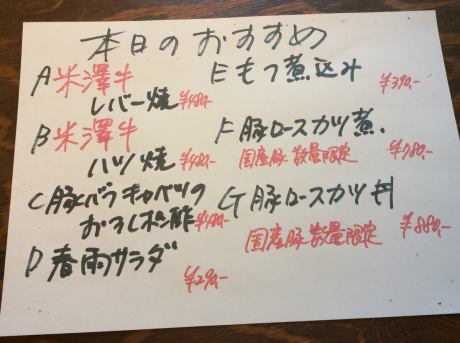 本日のおすすめ
A 米澤牛
レバー焼 ¥480-
B 米澤牛
ハツ焼 ¥480-
C 豚バラキャベツの
おろしポン酢 ¥480-
D 春雨サラダ
¥290-
E もつ煮込み
¥390-
F 豚ロースカツ煮.
国産豚 数量限定 ¥780-
G 豚ロースカツ丼
国産豚 数量限定 ¥880-